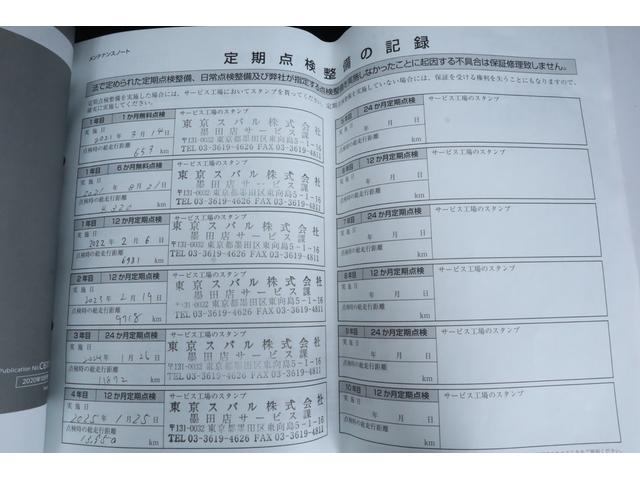 メンテナンスノート
定期点検整備の記録
法で定められた定期点検整備、日常点検整備及び弊社が指定する点検整備を実施しなかったことに起因する不具合は保証修理致しません。
定期点検整備を実施した場合には、サービス工場においてスタンプを貰ってください。
確実に実施してください。
1年目 1か月無料点検 サービス工場のスタンプ
実施日
2021年3月14日
点検時の総走行距離
657 km
東京スバル株式会社
墨田店サービス課
〒131-0032 東京都墨田区東向島5-1-16
TEL 03-3619-4626 FAX 03-3619-4811
1年目 6か月無料点検 サービス工場のスタンプ
実施日
2021年 月21日
点検時の総走行距離
km
東京スバル株式会社
墨田店サービス課
〒131-0032 東京都墨田区東向島5-1-16
TEL 03-3619-4626 FAX 03-3619-4811
1年目 12か月定期点検 サービス工場のスタンプ
実施日
2022年2月6日
点検時の総走行距離
6981 km
東京スバル株式会社
墨田店サービス課
〒131-0032 東京都墨田区東向島5-1-16
TEL 03-3619-4626 FAX 03-3619-4811
2年目 12か月定期点検 サービス工場のスタンプ
実施日
2023年2月19日
点検時の総走行距離
9718 km
東京スバル株式会社
墨田店サービス課
〒131-0032 東京都墨田区東向島5-1-16
TEL 03-3619-4626 FAX 03-3619-4811
3年目 24か月定期点検 サービス工場のスタンプ
実施日
2024年1月26日
点検時の総走行距離
11892 km
東京スバル株式会社
墨田店サービス課
〒131-0032 東京都墨田区東向島5-1-16
TEL 03-3619-4626 FAX 03-3619-4811
4年目 12か月定期点検 サービス工場のスタンプ
実施日
2025年1月25日
点検時の総走行距離
13550 km
東京スバル株式会社
墨田店サービス課
〒131-0032 東京都墨田区東向島5-1-16
TEL 03-3619-4626 FAX 03-3619-4811
24か月定期点検 サービス工場のスタンプ
実施日
年 月 日
点検時の総走行距離
km
12か月定期点検 サービス工場のスタンプ
実施日
年 月 日
点検時の総走行距離
km
7年目 24か月定期点検 サービス工場のスタンプ
実施日
年 月 日
点検時の総走行距離
km
8年目 12か月定期点検 サービス工場のスタンプ
実施日
年 月 日
点検時の総走行距離
km
9年目 24か月定期点検 サービス工場のスタンプ
実施日
年 月 日
点検時の総走行距離
km
10年目 12か月定期点検 サービス工場のスタンプ
実施日
年 月 日
点検時の総走行距離
km
Publication No.